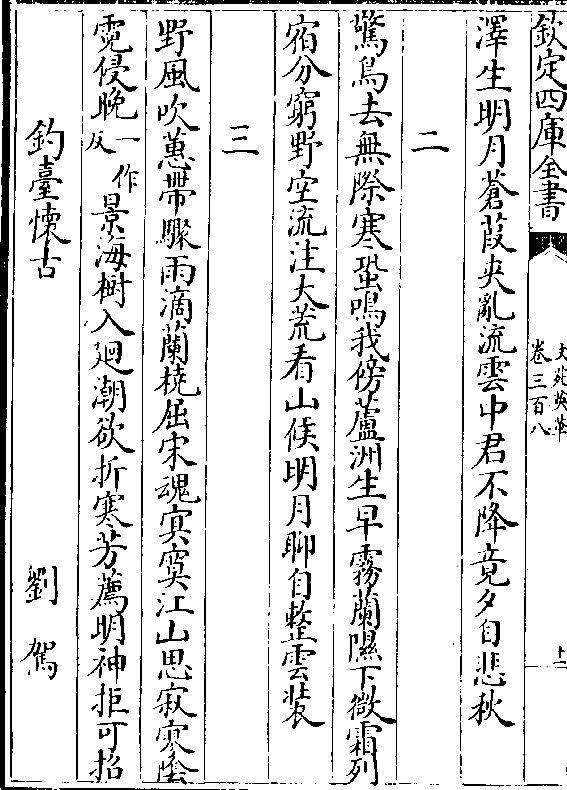 欽定四庫全書
文苑英華
卷三百八
十二
澤生明月蒼葭夾亂流雲中君不降竟夕自悲秋
二
驚鳥去無際寒蛩鳴我傍蘆洲生早霧蘭隰下微霜列
宿分窮野空流注大荒看山候明月聊自整雲裝
三
野風吹蕙帶驟雨滴蘭橈屈宋魂冥寞江山思寂寥陰
霓侵晚一作反景海樹入廻潮欲折寒芳薦明神拒可招
釣臺懷古 劉駕